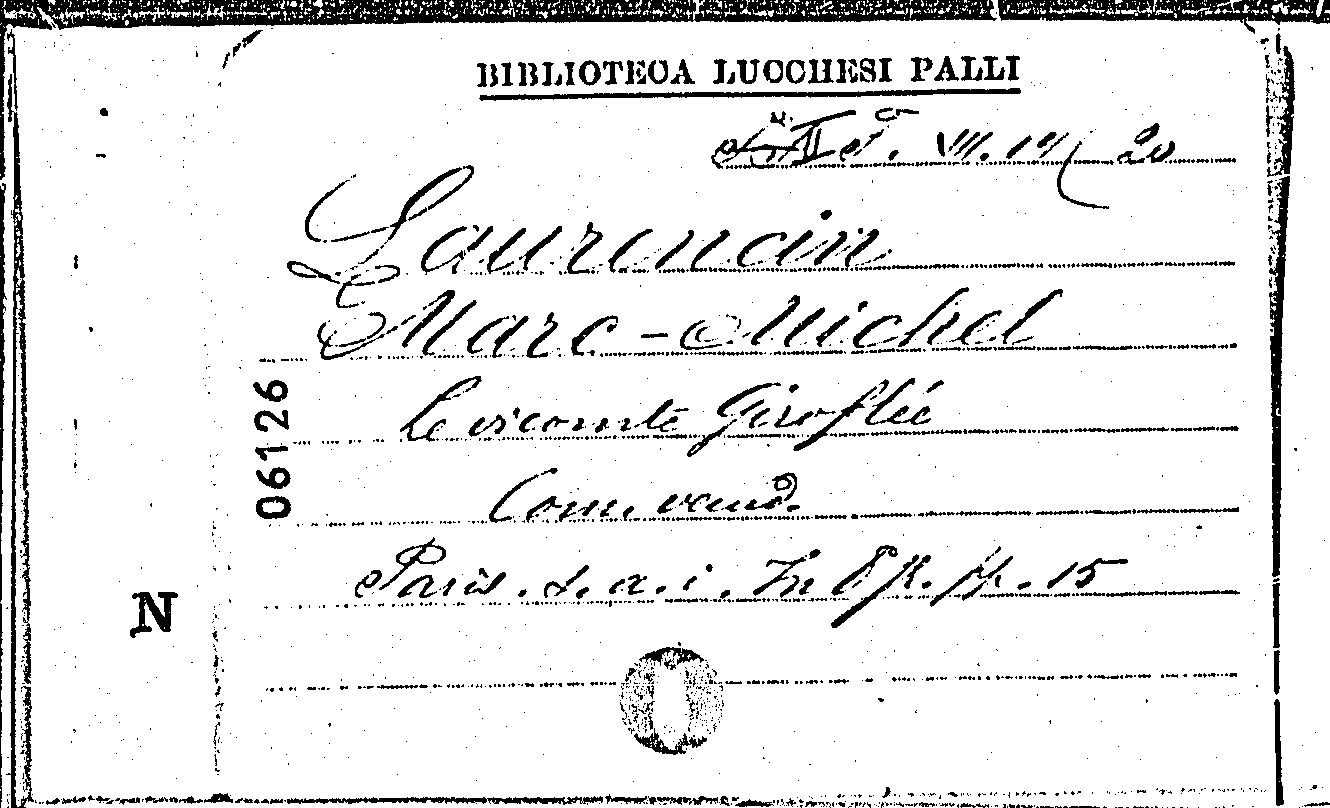 BIBLIOTECA LUCCHESI PALLI
VII. 14 ( 20
Laurencin
Marc-Michel
Le vicomte Giroflée
Com. vaud.
Paris. s. a. i. In 8° p. pp. 15
06126
N